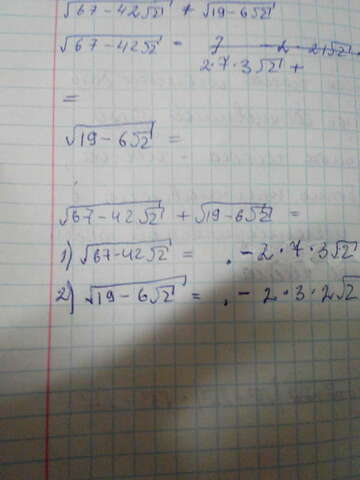 √67-42√2 + √19-6√2
√67-42√2 = 7 - 2 · 2√2
2·7·3√2 +
=
√19-6√2 =
√67-42√2 + √19-6√2 =
1) √67-42√2 = . - 2·7·3√2
2) √19-6√2 = . - 2·3·2√2